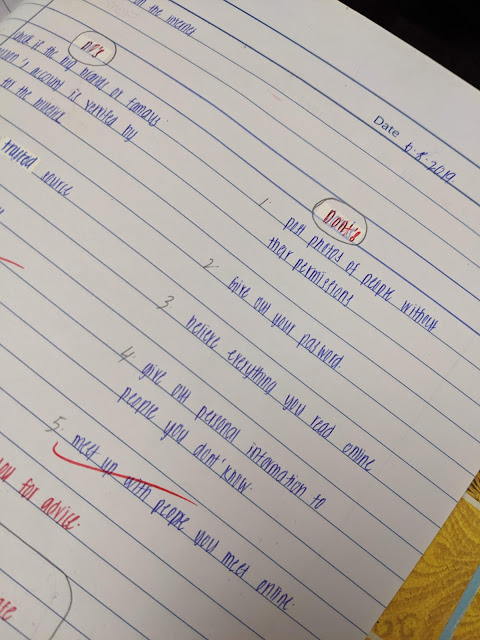 the internet
DO's
if the big brands or famous
account is verified by
trusted source
you for advice.
Date 6.8.2019
Dont's
1. post photos of people without
their permissions
2. Give out your pasword.
3. believe everything you read online
4. give out personal information to
people you dont' know.
5. meet up with people you meet online.